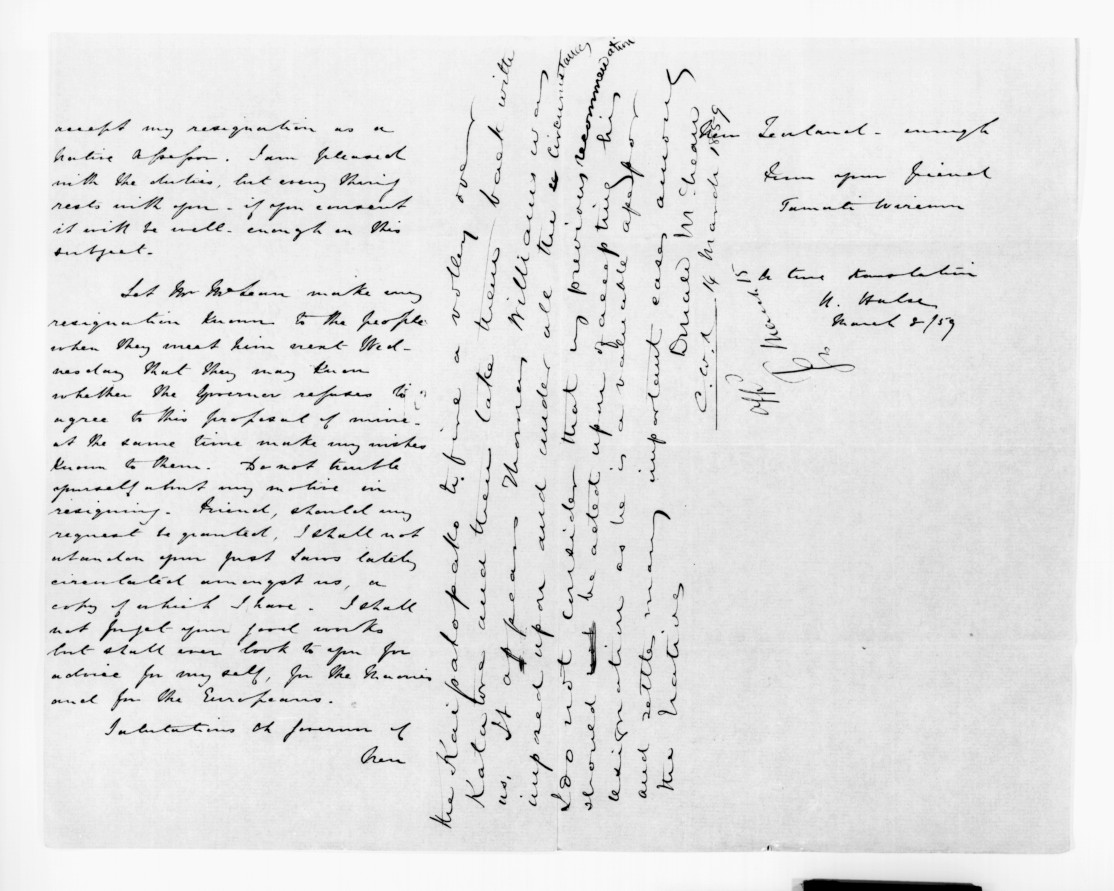 accept my resignation as a
Native Assessor. I am pleased
with the duties, but every thing
rests with you - if you consent
it will be well - enough on this
subject.
Let Mr McLean make my
resignation known to the people
when they meet him next Wed-
nesday that they may know
whether the Governor refuses to
agree to this proposal of mine -
at the same time make my wishes
known to them. Do not trouble
yourself about my motive in
resigning. Friend, should my
request be granted, I shall not
abandon your just Laws lately
circulated amongst us, a
copy of which I have. I shall
not forget your good works
but shall ever look to you for
advice for my self, for the Maories
and for the Europeans.
Salutations Oh Governor of
New
the Kaipatopako to fire a volley over
Katatore and then take them back with
us. It appears Thomas Williams was
imposed upon and under all the circumstances
I do not consider that my previous recommendation
should be acted upon of accepting his
resignation as he is a valuable
and settles many important cases among
the Natives
Donald McLean
C.W.D. 14 March 1859
March 15
New Zealand - enough
From your friend
Tamati Wiremu
A true translation
H. Halse
March 8/59